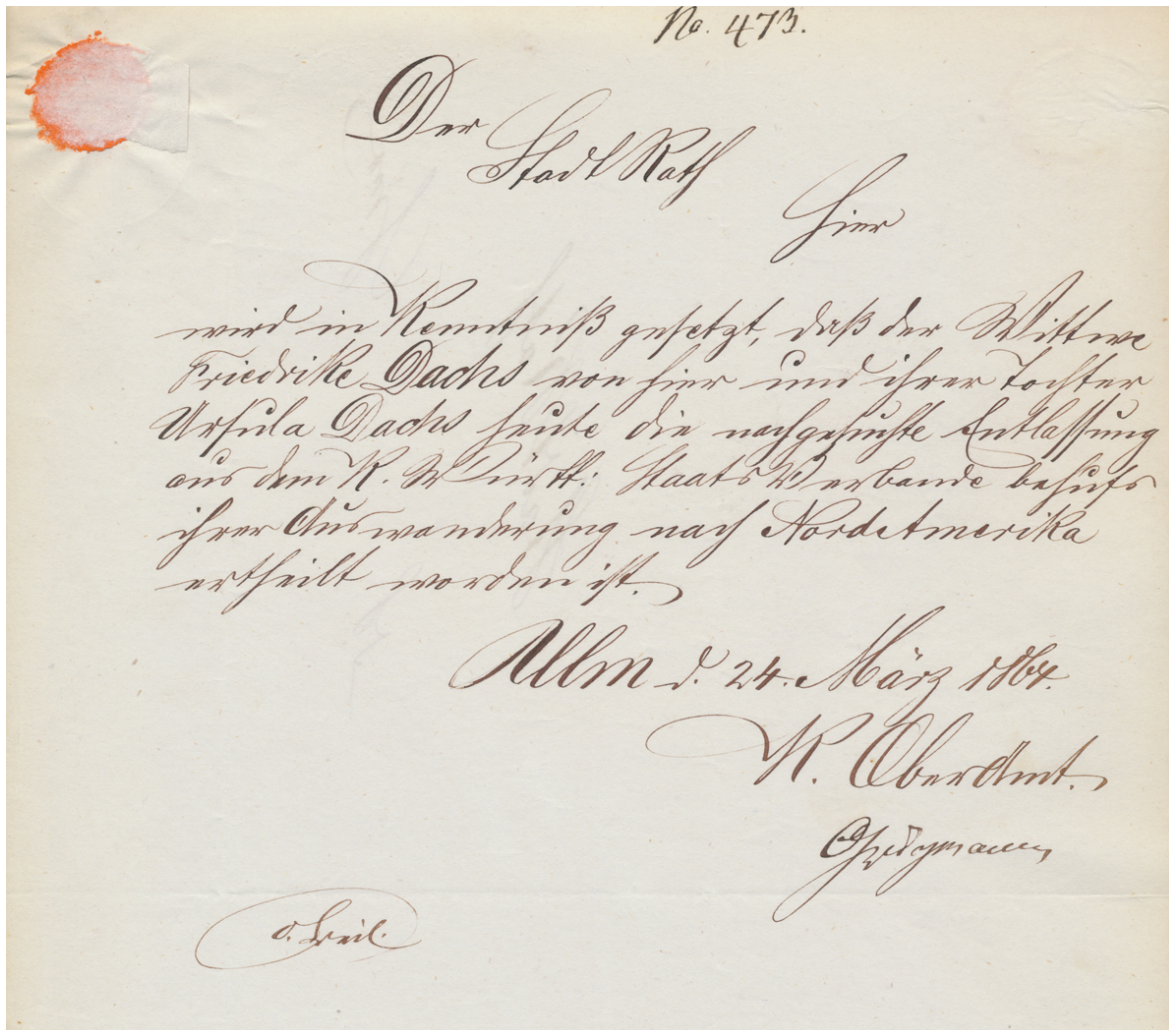 No. 473.
Der
Stadt Rath
hier
wird in Kenntniß gesetzt, daß der Wittwe
Friedrike Dachs von hier und ihrer Tochter
Ursula Dachs heute die nachgesuchte Entlassung
aus dem K. Württ: Staats Verbande behufs
ihrer Auswanderung nach Nord Amerika
ertheilt worden ist.
Ulm d. 24. März 1864.
K. OberAmt.